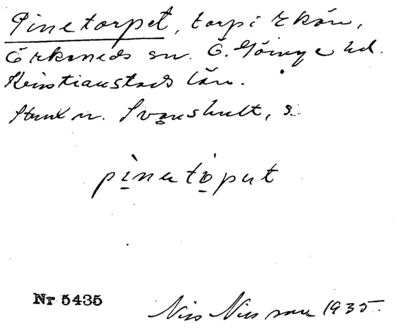 Pinetorpet, torp i Skåne,
Örkeneds sn. Ö. Göinge hd.
Kristianstads län.
n. Svanshult, s.
pinatòput
Nr 5435
Nils Nilsson 1935.